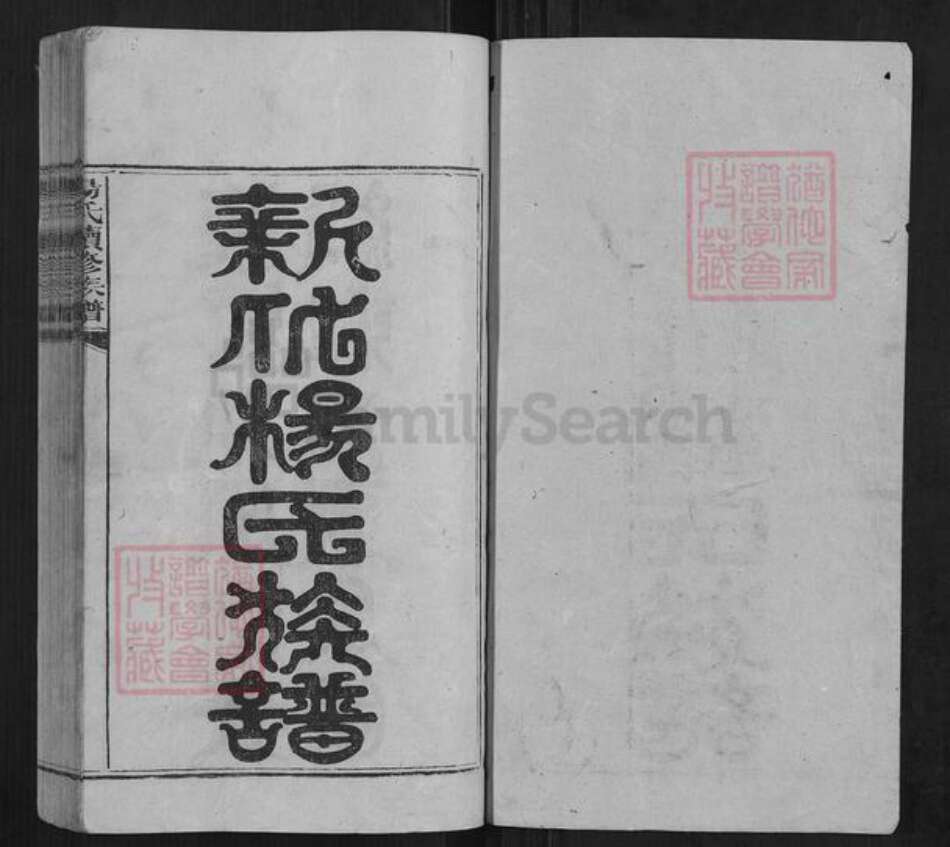 猶他家
譜學會
收藏
新化楊氏族譜
楊氏續修族譜
猶他家
譜學會
收藏
FamilySearch